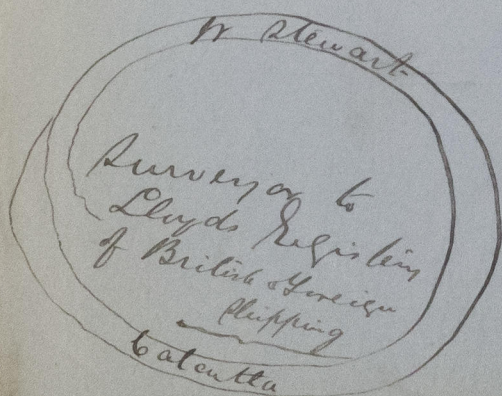 W Stewart
Surveyor to
Lloyds Registery
of British & Foreign
Shipping
Calcutta